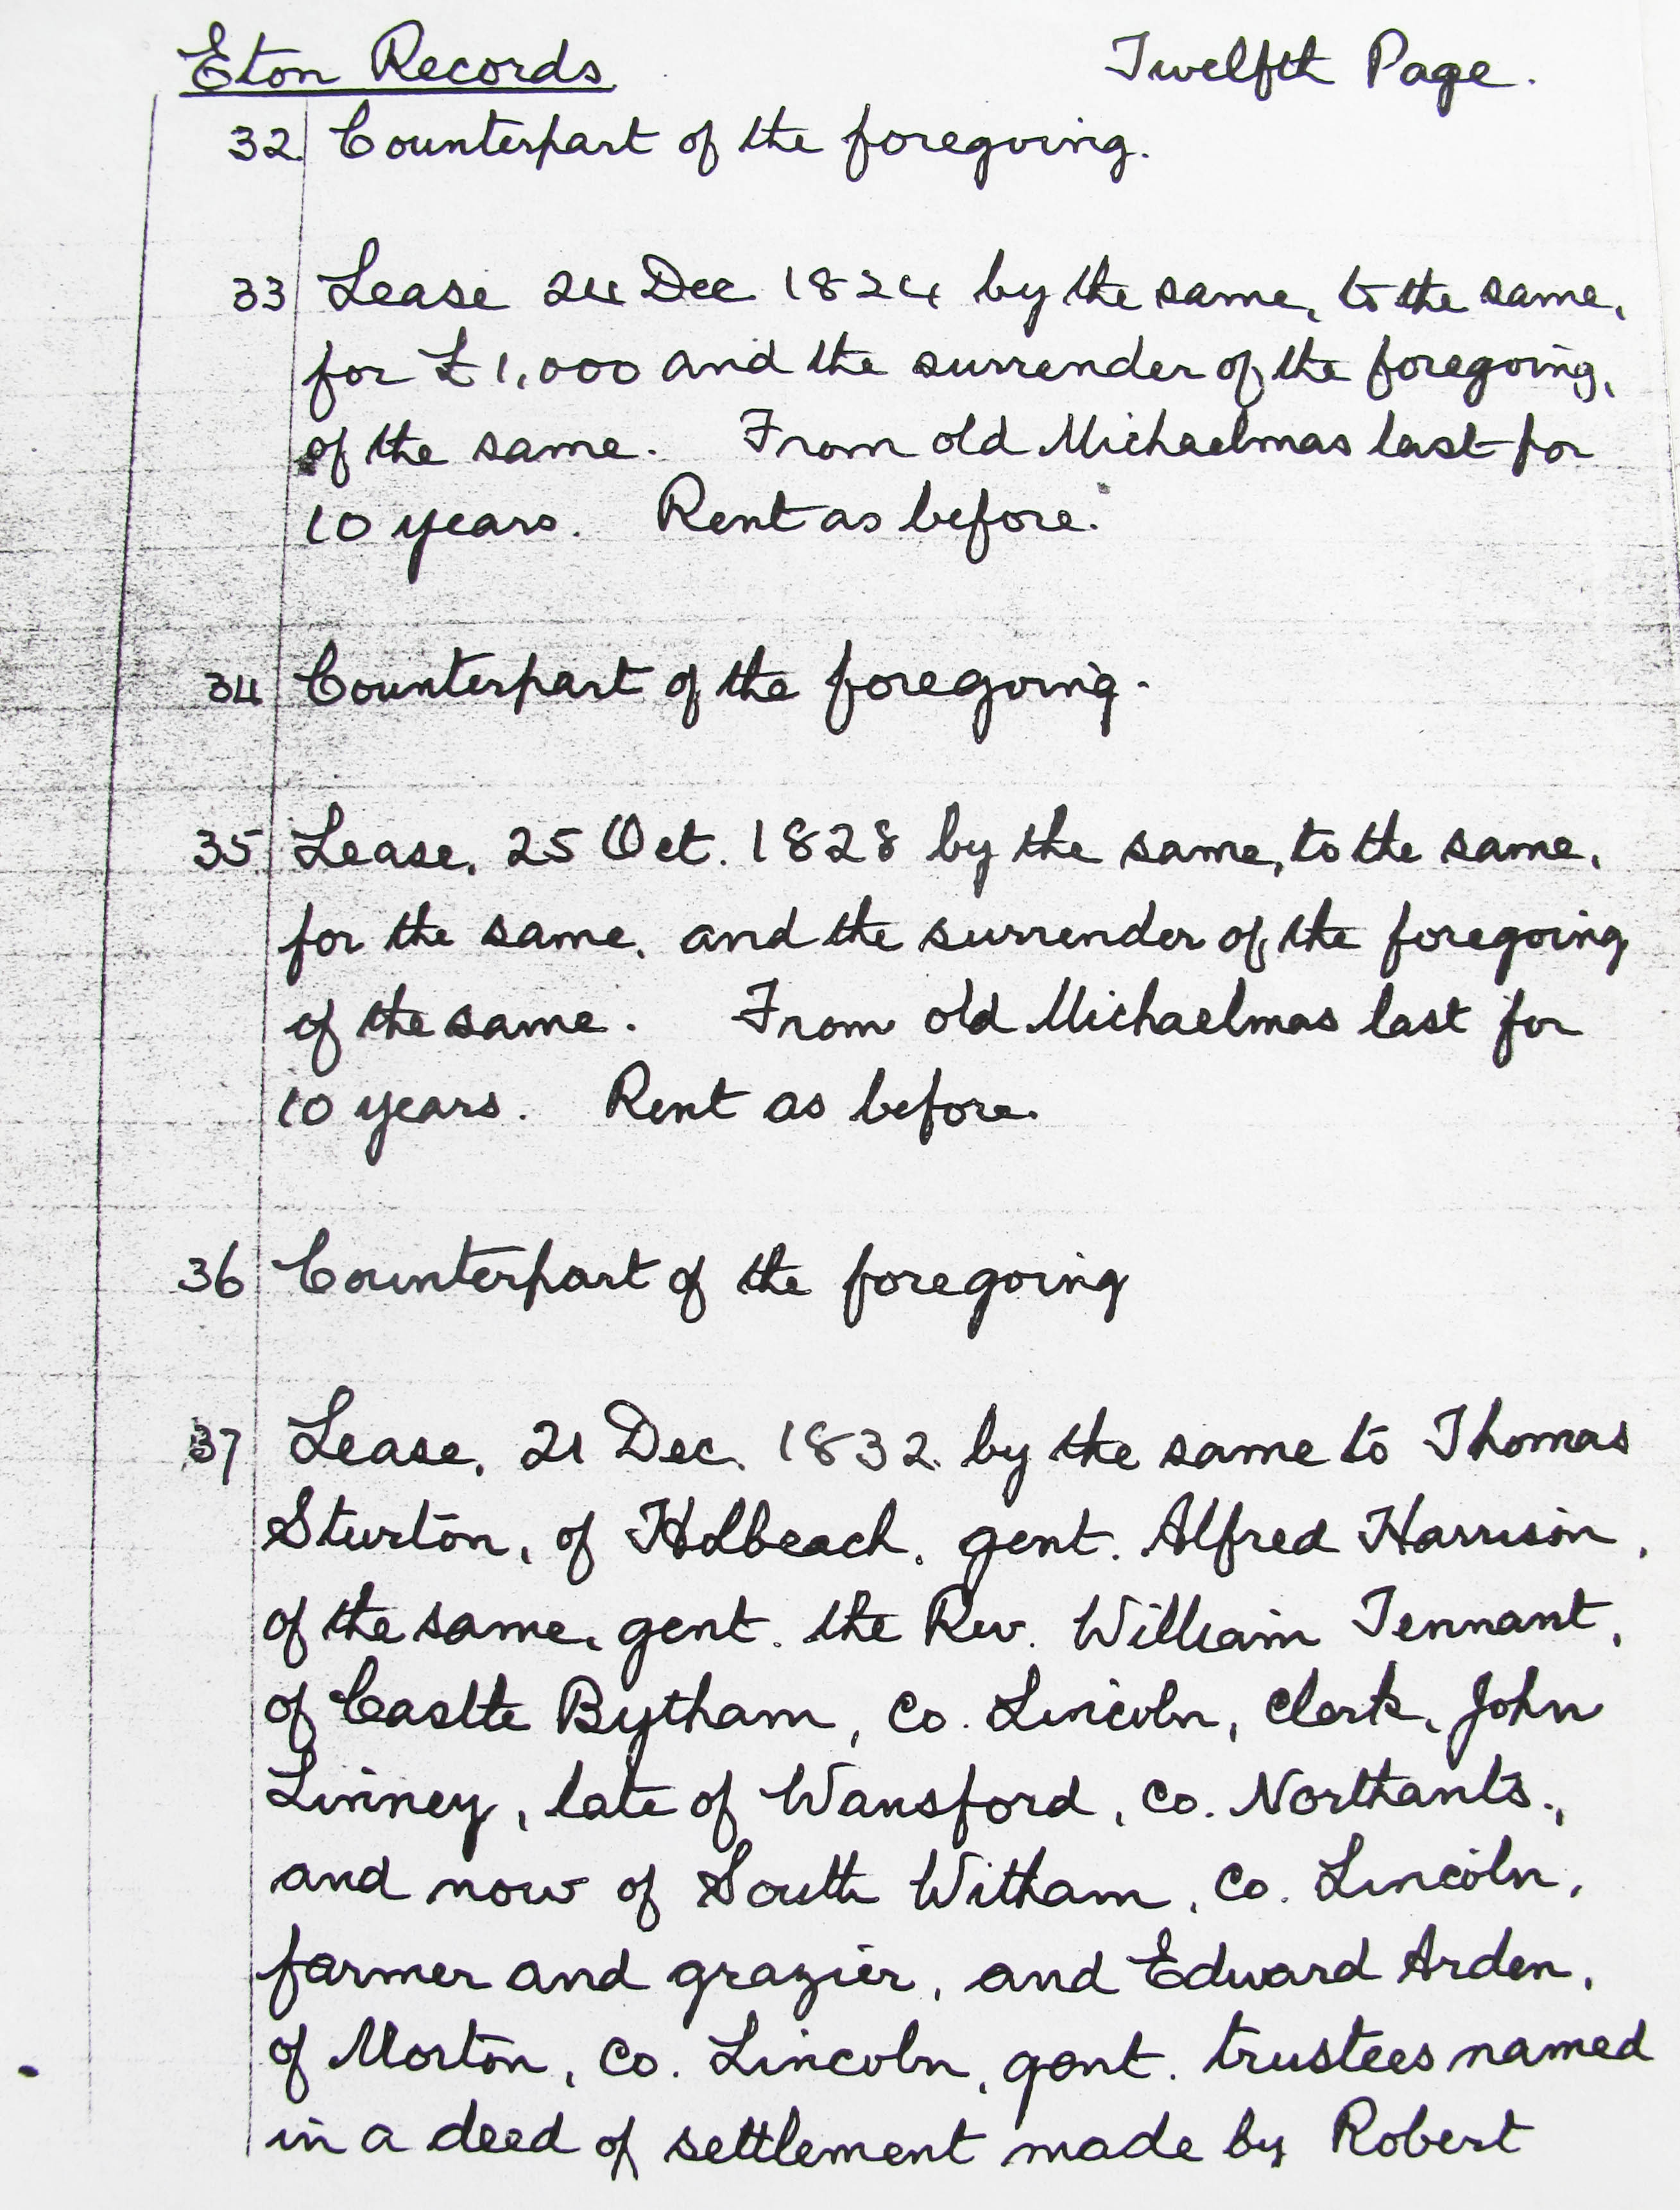 Eton Records Twelfth Page.
32. Counterpart of the foregoing.
33 Lease 24 Dec 1824 by the same, to the same,
for £1,000 and the surrender of the foregoing,
of the same. From old Michaelmas last for
10 years. Rent as before.
34 Counterpart of the foregoing.
35 Lease, 25 Oct. 1828 by the same, to the same,
for the same, and the surrender of the foregoing
of the same. From old Michaelmas last for
10 years. Rent as before.
36 Counterpart of the foregoing
37 Lease, 21 Dec. 1832. by the same to Thomas
Sturton, of Holbeach, gent. Alfred Harrison,
of the same, gent. the Rev. William Tennant,
of Castle Bytham, Co. Lincoln, Clerk, John
Linney, late of Wansford, Co. Northants.,
and now of South Witham, Co. Lincoln,
farmer and grazier, and Edward Arden,
of Morton, Co. Lincoln, gent. trustees named
in a deed of settlement made by Robert